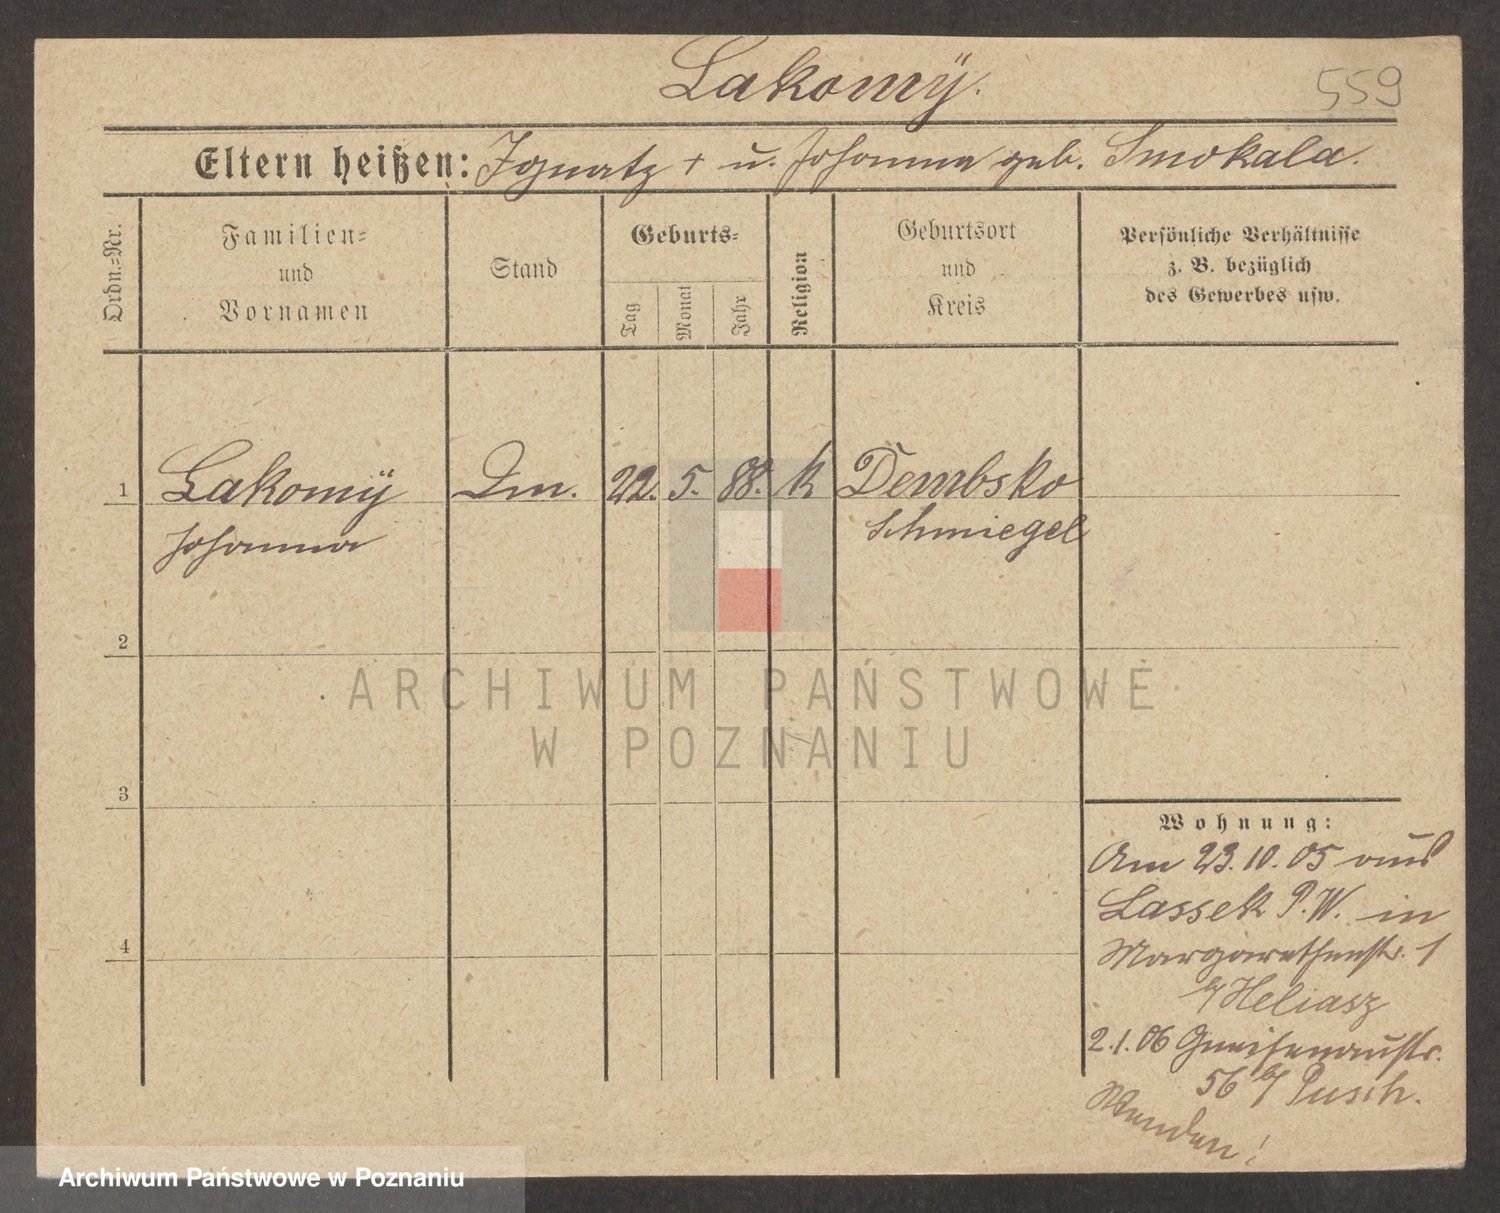 Lakomÿ.
559
Eltern heißen: Ignatz + u. Johanna geb. Smokala.
Ordn.=Nr.
Familien=
und
Vornamen
Stand
Geburts=
Tag
Monat
Jahr
Religion
Geburtsort
und
Kreis
Persönliche Verhältnisse
z. B. bezüglich
des Gewerbes usw.
1 Lakomÿ Dm. 22. 5. 88. k Dembsko
Johanna Schmiegel
2
3
4
Wohnung:
Am 23.10.05 aus
Lassek P.W. in
Margarethenstr. 1
b/ Heliasz
2.1.06 Gneisenaustr.
56 b/ Pusch.
Wenden!
ARCHIWUM PAŃSTWOWE
W POZNANIU
Archiwum Państwowe w Poznaniu